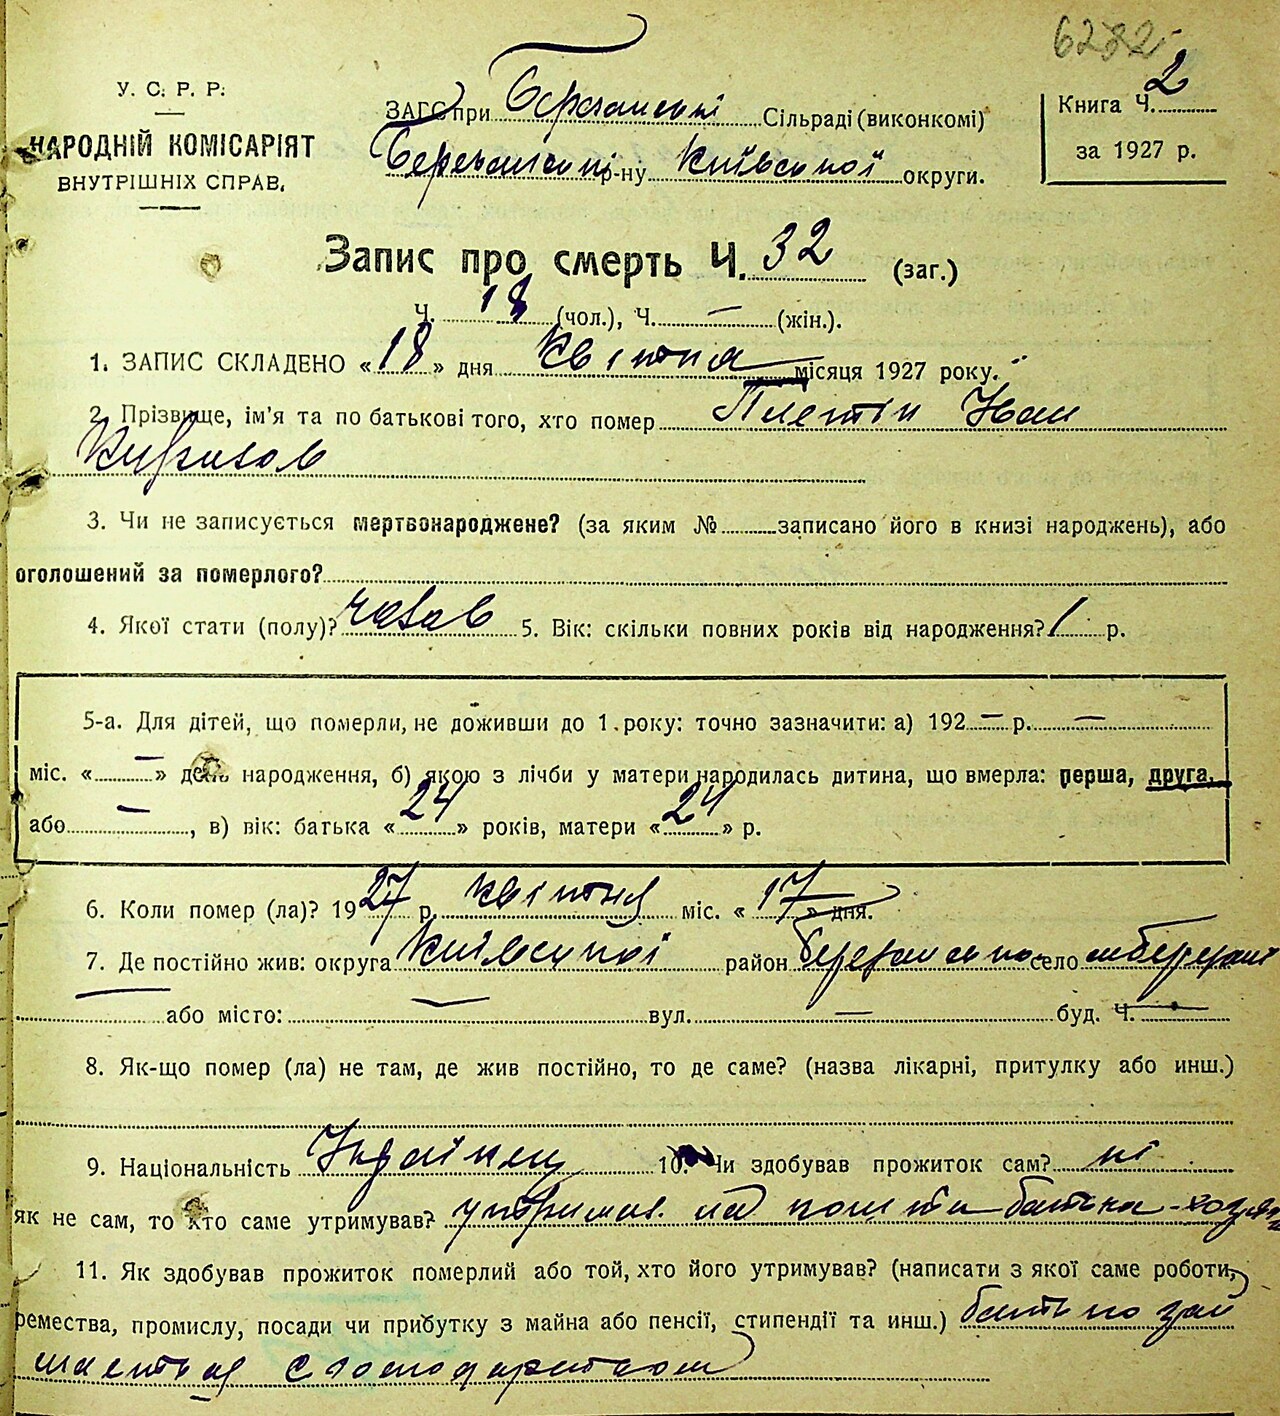 6282
У. С. Р. Р.
НАРОДНІЙ КОМІСАРІЯТ
ВНУТРІШНІХ СПРАВ.
ЗАГС при Березанські Сільраді (виконкомі)
р-ну Київської округи.
Книга Ч. 2
за 1927 р.
Запис про смерть Ч. 32 (заг.)
Ч. 18 (чол.), Ч. — (жін.).
1. ЗАПИС СКЛАДЕНО « 18 » дня квітня місяця 1927 року.
2. Прізвище, ім'я та по батькові того, хто помер Іван
3. Чи не записується мертвонароджене? (за яким № записано його в книзі народжень), або
оголошений за померлого?
4. Якої стати (полу)? чолов 5. Вік: скільки повних років від народження? 1 р.
5-а. Для дітей, що померли, не доживши до 1 року: точно зазначити: а) 192 — р. —
міс. « — » день народження, б) якою з лічби у матери народилась дитина, що вмерла: перша, друга,
або — , в) вік: батька « 24 » років, матери « 24 » р.
6. Коли помер (ла)? 19 27 р. квітня міс. « 17 » дня.
7. Де постійно жив: округа Київської район село
або місто: — вул. — буд. Ч. —
8. Як-що помер (ла) не там, де жив постійно, то де саме? (назва лікарні, притулку або инш.)
9. Національність Українец 10. Чи здобував прожиток сам? ні
як не сам, то хто саме утримував? утримав. на кошти батька-
11. Як здобував прожиток померлий або той, хто його утримував? (написати з якої саме роботи,
ремества, промислу, посади чи прибутку з майна або пенсії, стипендії та инш.) батько зай